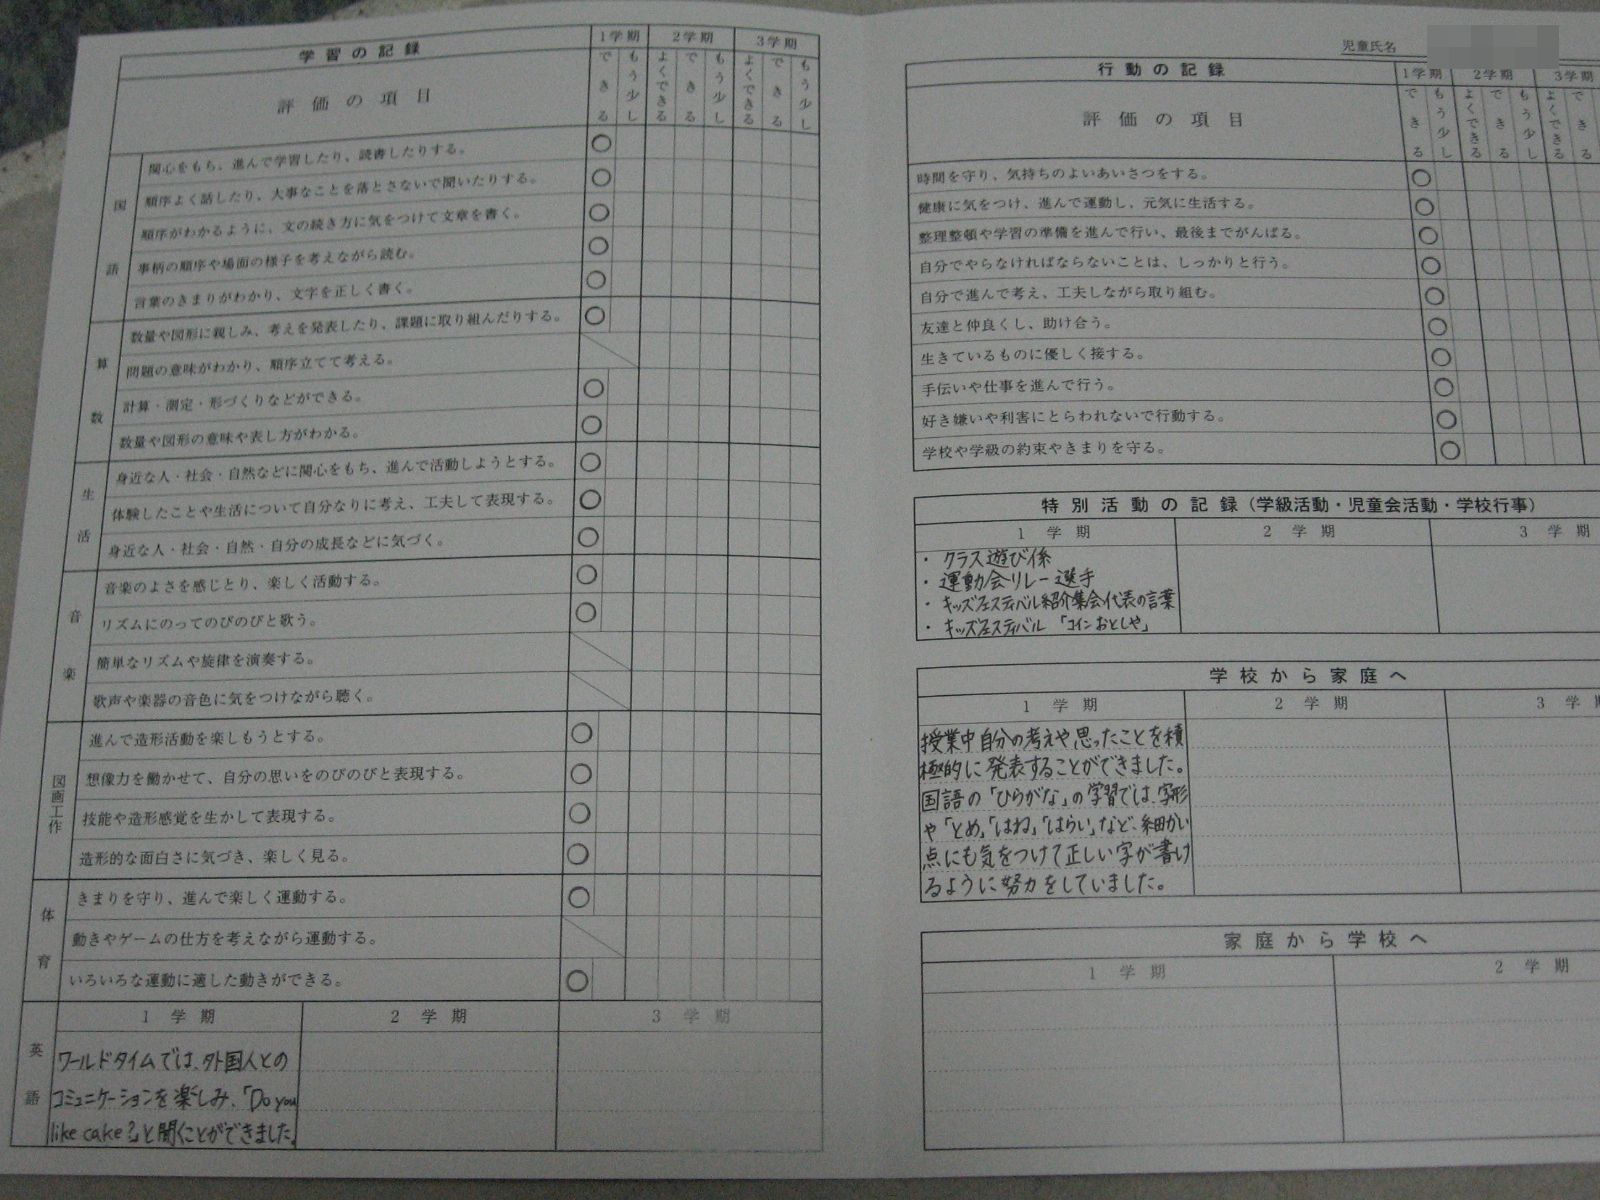 学習の記録
1学期 2学期 3学期
評価の項目
できる もう少し よくできる できる もう少し よくできる できる もう少し
国語
関心をもち、進んで学習したり、読書したりする。 ○
順序よく話したり、大事なことを落とさないで聞いたりする。 ○
順序がわかるように、文の続き方に気をつけて文章を書く。 ○
事柄の順序や場面の様子を考えながら読む。 ○
言葉のきまりがわかり、文字を正しく書く。 ○
算数
数量や図形に親しみ、考えを発表したり、課題に取り組んだりする。 ○
問題の意味がわかり、順序立てて考える。
計算・測定・形づくりなどができる。 ○
数量や図形の意味や表し方がわかる。 ○
生活
身近な人・社会・自然などに関心をもち、進んで活動しようとする。 ○
体験したことや生活について自分なりに考え、工夫して表現する。 ○
身近な人・社会・自然・自分の成長などに気づく。 ○
音楽
音楽のよさを感じとり、楽しく活動する。 ○
リズムにのってのびのびと歌う。 ○
簡単なリズムや旋律を演奏する。
歌声や楽器の音色に気をつけながら聴く。
図画工作
進んで造形活動を楽しもうとする。 ○
想像力を働かせて、自分の思いをのびのびと表現する。 ○
技能や造形感覚を生かして表現する。 ○
造形的な面白さに気づき、楽しく見る。 ○
体育
きまりを守り、進んで楽しく運動する。 ○
動きやゲームの仕方を考えながら運動する。
いろいろな運動に適した動きができる。 ○
英語
1学期 2学期 3学期
ワールドタイムでは、外国人との
コミュニケーションを楽しみ、「Do you
like cake?」と聞くことができました。
児童氏名
行動の記録
1学期 2学期 3学期
評価の項目
できる もう少し よくできる できる もう少し よくできる できる
時間を守り、気持ちのよいあいさつをする。 ○
健康に気をつけ、進んで運動し、元気に生活する。 ○
整理整頓や学習の準備を進んで行い、最後までがんばる。 ○
自分でやらなければならないことは、しっかりと行う。 ○
自分で進んで考え、工夫しながら取り組む。 ○
友達と仲良くし、助け合う。 ○
生きているものに優しく接する。 ○
手伝いや仕事を進んで行う。 ○
好き嫌いや利害にとらわれないで行動する。 ○
学校や学級の約束やきまりを守る。 ○
特別活動の記録（学級活動・児童会活動・学校行事）
1学期 2学期 3学
・クラス遊び係
・運動会リレー選手
・キッズフェスティバル紹介集会代表の言葉
・キッズフェスティバル「コインおとしや」
学校から家庭へ
1学期 2学期 3学期
授業中自分の考えや思ったことを積
極的に発表することができました。
国語の「ひらがな」の学習では、字形
や「とめ」「はね」「はらい」など、細かい
点にも気をつけて正しい字が書け
るように努力をしていました。
家庭から学校へ
1学期 2学期